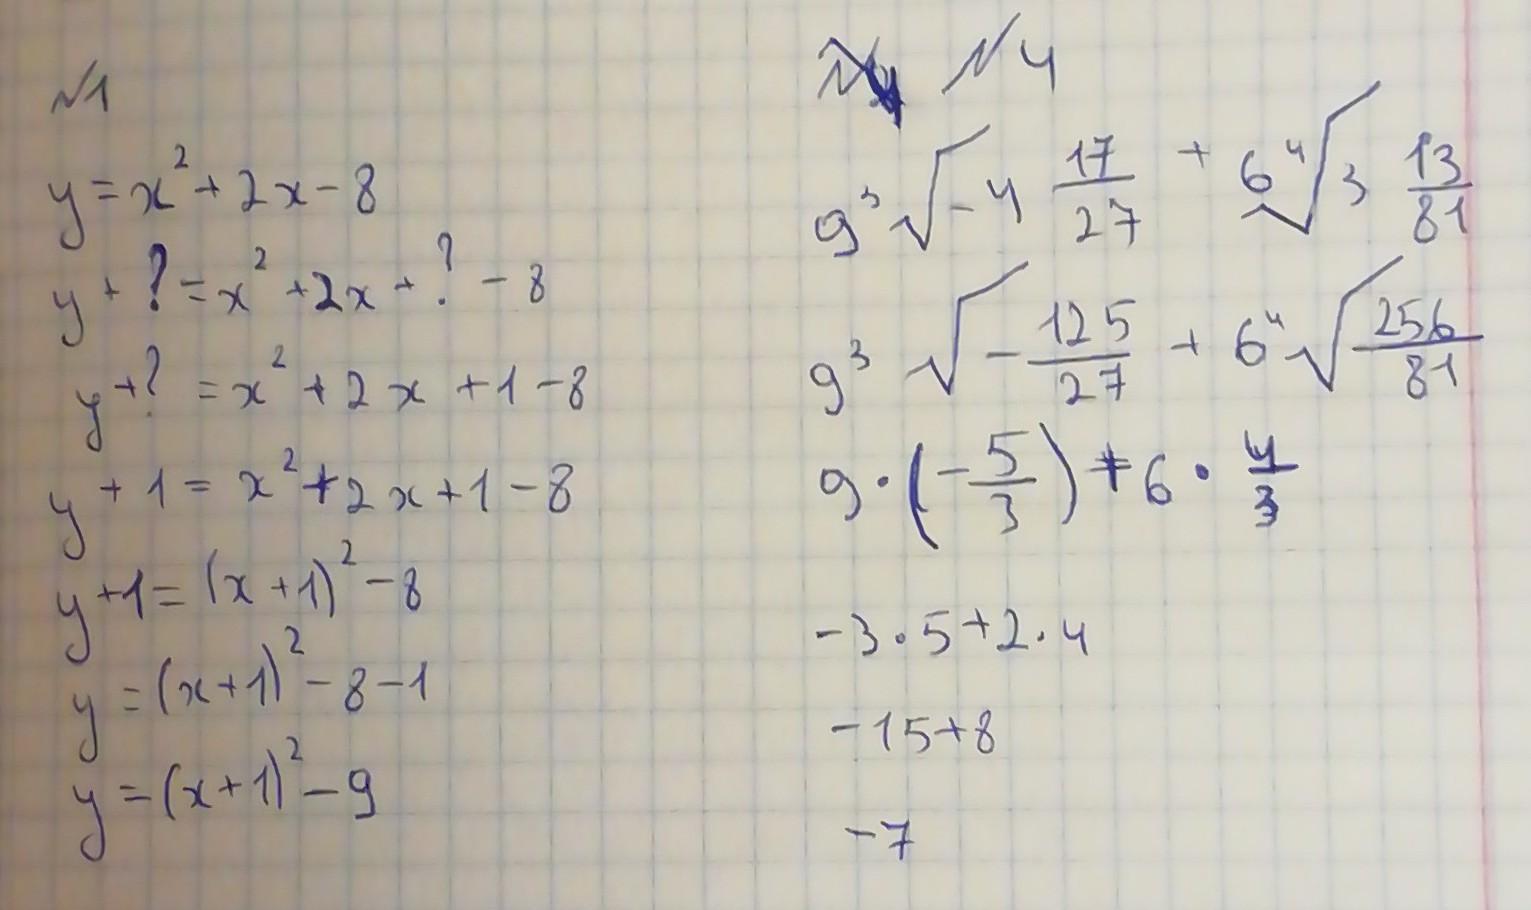 №1
y = x² + 2x - 8
y + ? = x² + 2x + ? - 8
y + ? = x² + 2x + 1 - 8
y + 1 = x² + 2x + 1 - 8
y + 1 = (x + 1)² - 8
y = (x + 1)² - 8 - 1
y = (x + 1)² - 9
№4
9 ³√(-4 17/27) + 6 ⁴√(3 13/81)
9 ³√(-125/27) + 6 ⁴√(256/81)
9 · (-5/3) + 6 · 4/3
-3 · 5 + 2 · 4
-15 + 8
-7